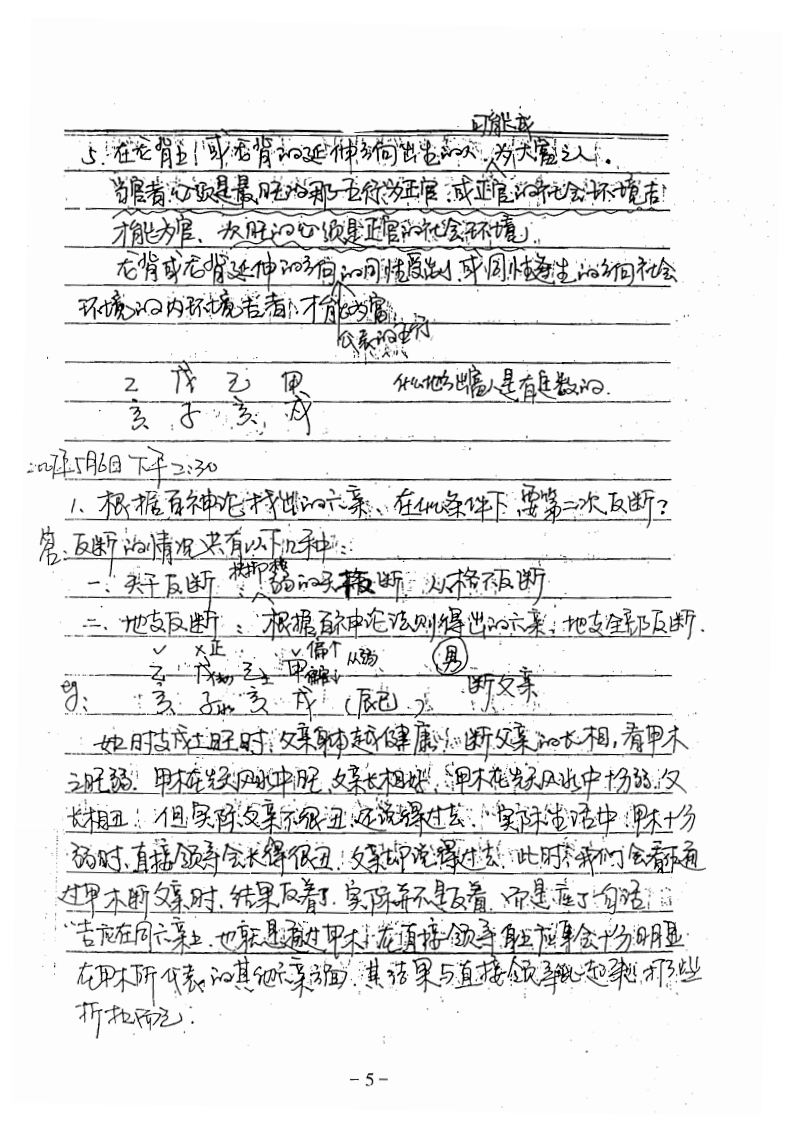 可能成
5. 在龙背上！或龙背的延伸方向出生的人，为大富之人！。
当官者必须是最旺的那个五行为正官，或正官的社会环境吉！
才能为官、次旺的必须是正官的社会环境，
龙背或龙背延伸的方向的同性受制，或同性逢生的方向社会
环境的内环境吉者，才能为富，
代表的五行
乙 戊 己 甲 什么地方出富人是有定数的.
亥 子 亥 戌
年5月6日下午2:30
1、根据百神论找出的六亲、在什么条件下，要第二次反断？
答：反断的情况共有以下几种：
一、天干反断：扶抑格弱的天干反断，从格不反断
二、地支反断：根据百神论法则得出的六亲，地支全部反断.
正 偏 从弱 男
乙 戊 己 甲 断父亲
eg: 亥 子 亥 戌 (辰巳)
如时支戌土旺时，父亲身体越健康！断父亲的长相，看甲木
之旺弱. 甲木在先天风水中旺，父亲长相好，甲木在先天风水中十分弱，父
长相丑！但实际父亲不很丑，还说得过去. 实际生活中，甲木十分
弱时，直接领导会长得很丑，父亲却说得过去. 此时，我们会看作通
过甲木断父亲时，结果反着了，实际并不是反着，而是应了一句话：
“吉应在同六亲上，也就是通过甲木，在直接领导身上应事会十分明显
在甲木所代表的其他六亲方面，其结果与直接领导比起来，那些
折扣而已：
-5-